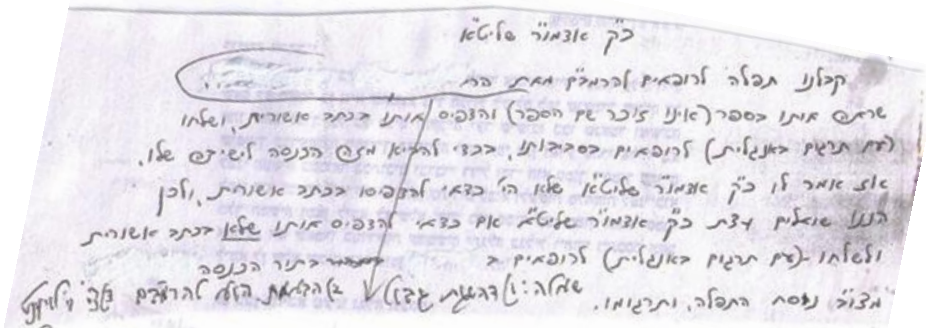 כ"ק אדמו"ר שליט"א
קבלנו תפלה לרופאים להרמב"ם מאת הר'
שראה אותו בספר (אינו זוכר שם הספר) והדפיס אותו בכתב אשורית, ושלחו
(עם תרגום באנגלית) לרופאים בסביבותו, בכדי להביא מזה הכנסה לישיבה שלו.
אז אמר לו כ"ק אדמו"ר שליט"א שלא הי' כדאי להדפיסו בכתב אשורית, ולכן
הננו שואלים עצת כ"ק אדמו"ר שליט"א אם כדאי להדפיס אותו שלא בכתב אשורית
ולשלחו (עם תרגום באנגלית) לרופאים ב בתור הכנסה
מצו"ב נוסח התפלה, ותרגומו.